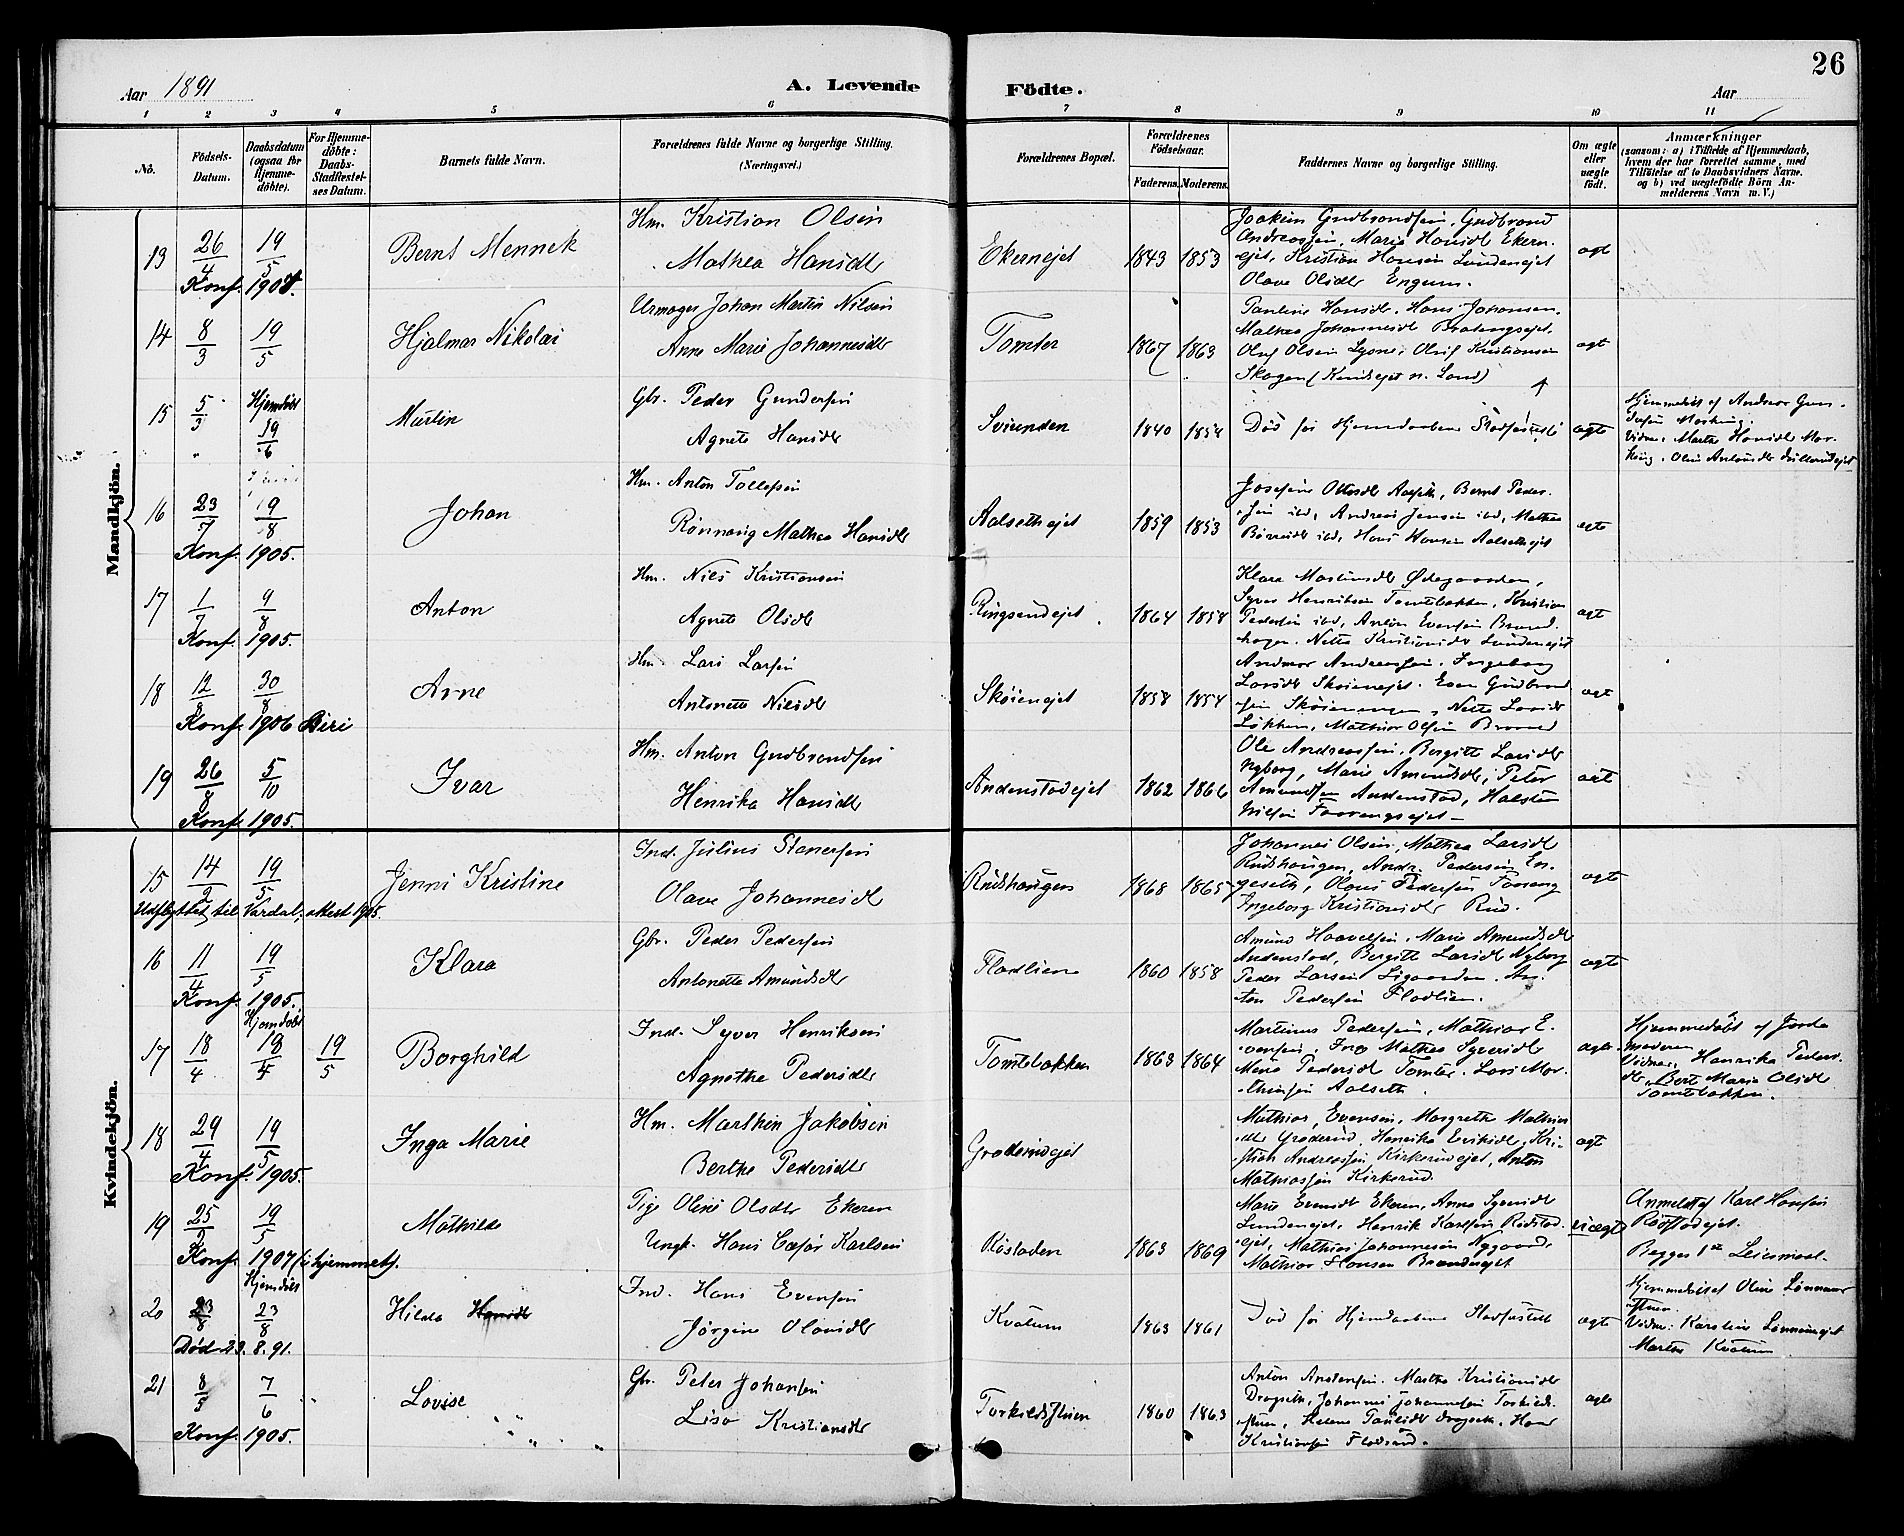 Aar 1891
A. Levende
Födte.
Aar
26
1 2 3 4 5 6 7 8 9 10 11
No.
Födsels-Datum.
Daabsdatum (ogsaa for Hjemmedöbte).
For Hjemmedöbte: Daabs-Stadfæstelses Datum.
Barnets fulde Navn.
Forældrenes fulde Navne og borgerlige Stilling. (Næringsvei.)
Forældrenes Bopæl.
Forældrenes Födselsaar.
Faderens. Moderens.
Faddernes Navne og borgerlige Stilling.
Om ægte eller uægte födt.
Anmærkninger
(saasom: a) i Tilfælde af Hjemmedaab, hvem der har forrettet samme, med Tilföielse af to Daabsvidners Navne. og b) ved uægtefödte Börn Anmelderens Navn m. V.)
Mandkjön.
13 26/4 19/5 Bernt Mennek
Hm. Kristian Olsen
Mathea Hansdtr
Ekernejet 1843 1853
Joakim Gudbrandsen, Gudbrand
Andreassen, Marie Hansdtr Ekern-
ejet, Kristian Hansen Lundenejet
Olave Olsdtr Engum.
ægt
Konf. 1907.
14 8/3 19/5 Hjalmar Nikolai
Urmager Johan Martin Nilsen
Anne Marie Johannesdtr
Tomter 1867 1863
Pauline Hansdtr, Hans Johansen
Mathea Johannesdtr
Oluf Olsen Lysne, Oluf Kristiansen
Skogen
ægt
15 5/3 Hjemdöbt 19/6 Martin
Gbr. Peder Gundersen
Agnete Hansdtr
Sviunden 1840 1854
Död før Hjemdaabens Stadfæstelse
ægte
Hjemmedöbt af Andreas Gun-
dersen
Vidner: Marthe Hansdtr
16 23/7 19/8 Johan
Hm. Anton Tollefsen
Rønnaug Mathea Hansdtr
Aalsethejet 1859 1853
Josefine Ottersdtr Aalseth, Bernt Peder-
sen ibd, Andreas Jensen ibd, Mathea
ibd, Hans Hansen Aalsethejet
ægt
Konf. 1905.
17 1/7 9/8 Anton
Hm. Nils Kristiansen
Agnete Olsdtr
Ringsendejet 1864 1858
Klara Martinsdtr Ødegaarden,
Syver Henriksen Tomtebakken, Kristian
Pedersen ibd, Anton Evensen Brænd-
hagen. Nette Kristiansdtr Lundenejet
ægt
Konf. 1905.
18 12/8 30/8 Arne
Hm. Lars Larsen
Antonette Nilsdtr
Skøienejet 1858 1854
Andreas Andreassen, Ingeborg
Larsdtr Skøienejet. Even Gudbrand-
sen Skøienengen, Nette Larsdtr
Løkken, Mathias Olsen
ægt
Konf. 1906 Biri
19 26/8 5/10 Ivar
Hm. Anton Gudbrandsen
Henrika Hansdtr
Andenstadejet 1862 1866
Ole Andreassen, Bergitte Larsdtr
Nyborg, Marie Amundsdtr, Peter
Amundsen Andenstad, Halsten
Nilsen Faavangsejet
ægt
Konf. 1905.
Kvindekjön.
15 14/2 19/5 Jenni Kristine
Ind. Julius Stenersen
Olave Johannesdtr
Rudshaugen 1868 1865
Johannes Olsen, Mathea Larsdtr
Rudshaugen, Andr. Pedersen En-
geseth, Olaus Pedersen Faavang
Ingeborg Kristiansdtr Rud.
ægt
Udflyttet til Vardal, attest 1905.
16 11/4 19/5 Klara
Gbr. Peder Pedersen
Antonette Amundsdtr
Fladlien 1860 1858
Amund Haavelsen, Marie Amundsdtr
Andenstad, Bergitte Larsdtr Nyborg
Peder Larsen Ligaarden. An-
ton Pedersen Fladlien.
ægte
Konf. 1905.
17 18/4 Hjemdöbt 18/4 19/5 Borghild
Ind. Syver Henriksen
Agnethe Pedersdtr
Tomtebakken 1863 1864
Martinus Pedersen, Mathias E-
vensen, Mathea Syversdtr
Marie Pedersdtr Tomter, Lars Mar-
thinsen Aalseth.
ægte
Hjemmedöbt af Jorde
moderen
Vidner, Henrika Peders-
dtr, Berte Marie Olsdtr
Tomtebakken.
18 29/4 19/5 Inga Marie
Hm. Marthin Jakobsen
Berthe Pedersdtr
Graderudejet
Mathias Evensen, Margrethe Mathias-
dtr Graderud, Henrika Eriksdtr, Kri-
stian Andreassen Kirkerudejet, Anton
Mathiassen Kirkerud.
ægt
Konf. 1905.
19 25/2 19/5 Mathilde
Pige Oline Olsdtr Ekeren
Ungk. Hans Cæsar Karlsen
Røstaden 1863 1869
Marie Evensdtr Ekeren, Anne Syversdtr
Lundenejet, Henrik Karlsen Røstad-
ejet, Mathias Johannesen Nygaard,
Mathias Hansen Brændejet
uægte
Anmeldt af Karl Hansen
Røstadejet.
Begges 1ste Leiermaal.
Konf. 1907 (i hjemmet).
20 23/8 Hjemdöbt 23/8 Hilda
Ind. Hans Evensen
Jørgine Olavsdtr
Kvalum 1863 1861
Död før Hjemdaabens Stadfæstelse
ægte
Hjemmedöbt af Oline
Vidner: Karoline
Marthe Kvalum
Död 23.8.91.
21 8/5 7/6 Lovise
Gbr. Peter Johansen
Lise Kristiansdtr
Torkildsstuen 1860 1863
Anton Andersen, Marthe Kristiansdtr
Dragseth, Johannes Johannesen Torkilds-
stuen, Helene Paulsdtr Dragseth, Hans
Kristiansen Fladsrud.
ægte
Konf. 1905.